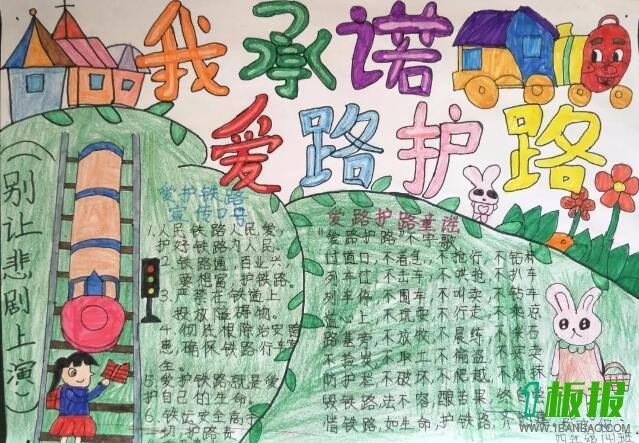 我承诺
爱路护路
（别让悲剧上演）
爱护铁路
宣传口号
1.人民铁路人民爱，
护好铁路为人民。
2.铁路通，百业兴，
要想富，护铁路。
3.严禁在铁道上
投放障碍物。
4.彻底根除治安隐
患，确保铁路行车安
全。
5.爱护铁路就是爱
护自己的生命。
爱路护路童谣
"爱路护路"不
过道口，不着急，不抢行，不钻
列车过，不击打，不哄抢，不扒车
列车停，不围车，不叫卖，不钻车
道心上，不坑玩，不行走，不乘凉
路基旁，不放牧，不晨练，不
不捡拾，不取土，不偷盗，不
防护栏，不破坏，不爬越，
毁铁路，法不容，酿苦果，终
惜铁路，如生命，护铁路，齐
1板报
WWW.1BANBAO.COM